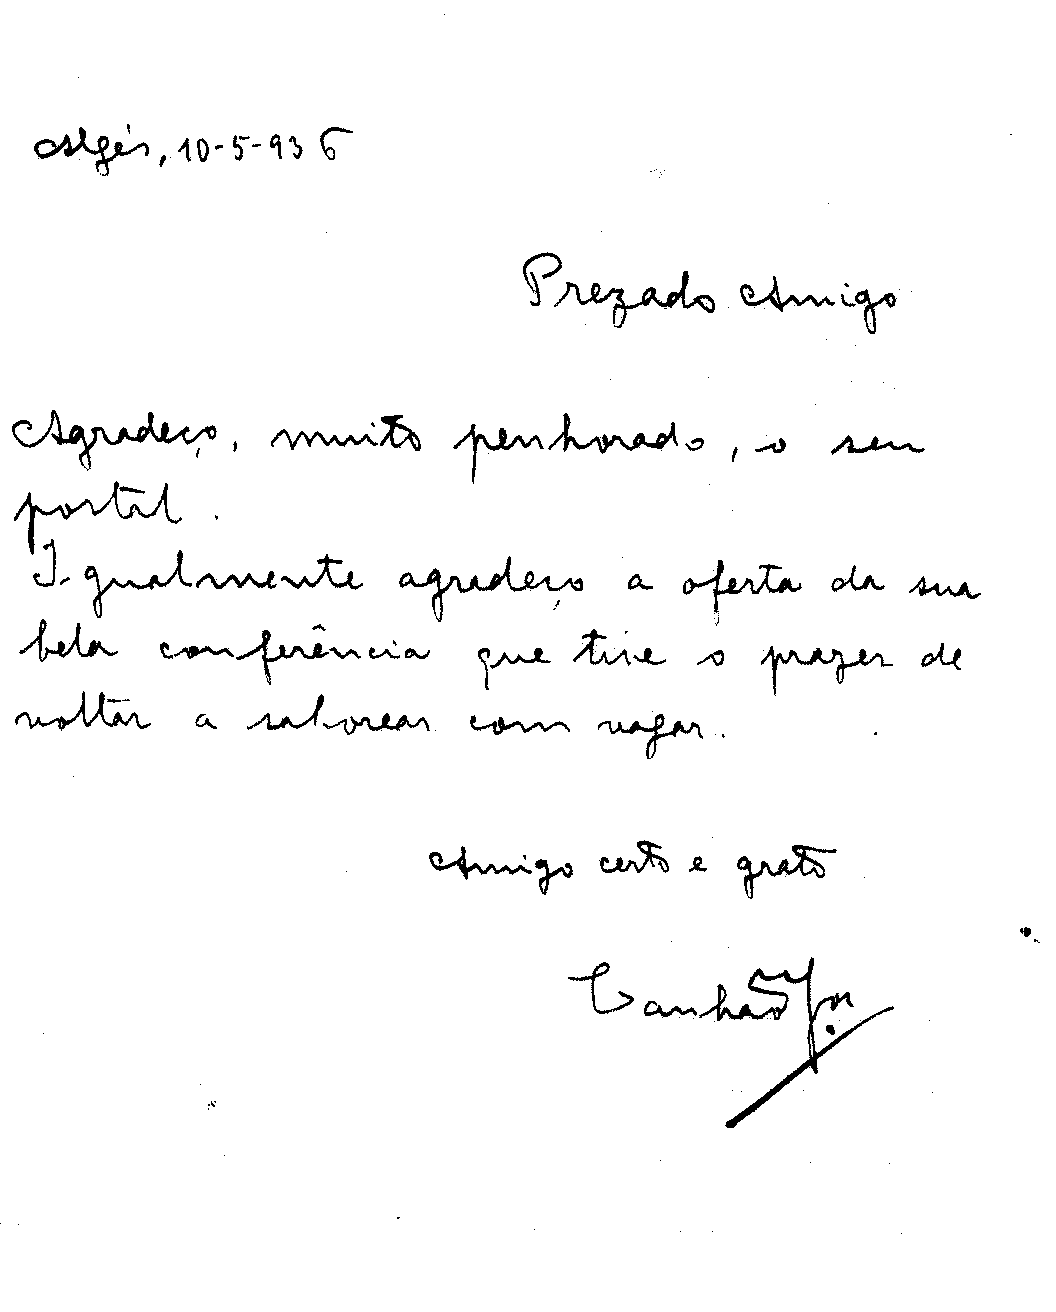 Algés, 10-5-936
Prezado Amigo
Agradeço, muito penhorado, o seu
postal.
Igualmente agradeço a oferta da sua
bela conferência que tive o prazer de
voltar a saborear com vagar.
Amigo certo e grato
Canhão Jor